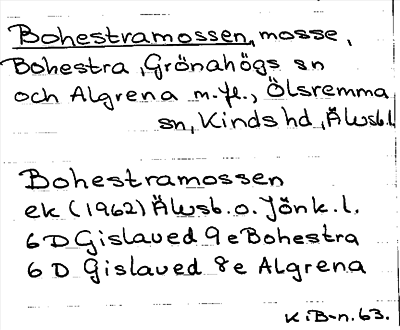 Bohestramossen, mosse,
Bohestra, Grönahögs sn
och Algrena m.fl., Ölsremma
sn, Kinds hd, Älvsb.l
Bohestramossen
ek (1962) Älvsb. o. Jönk.l.
6 D Gislaved 9 e Bohestra
6 D Gislaved 8 e Algrena
K iB-n. 63.